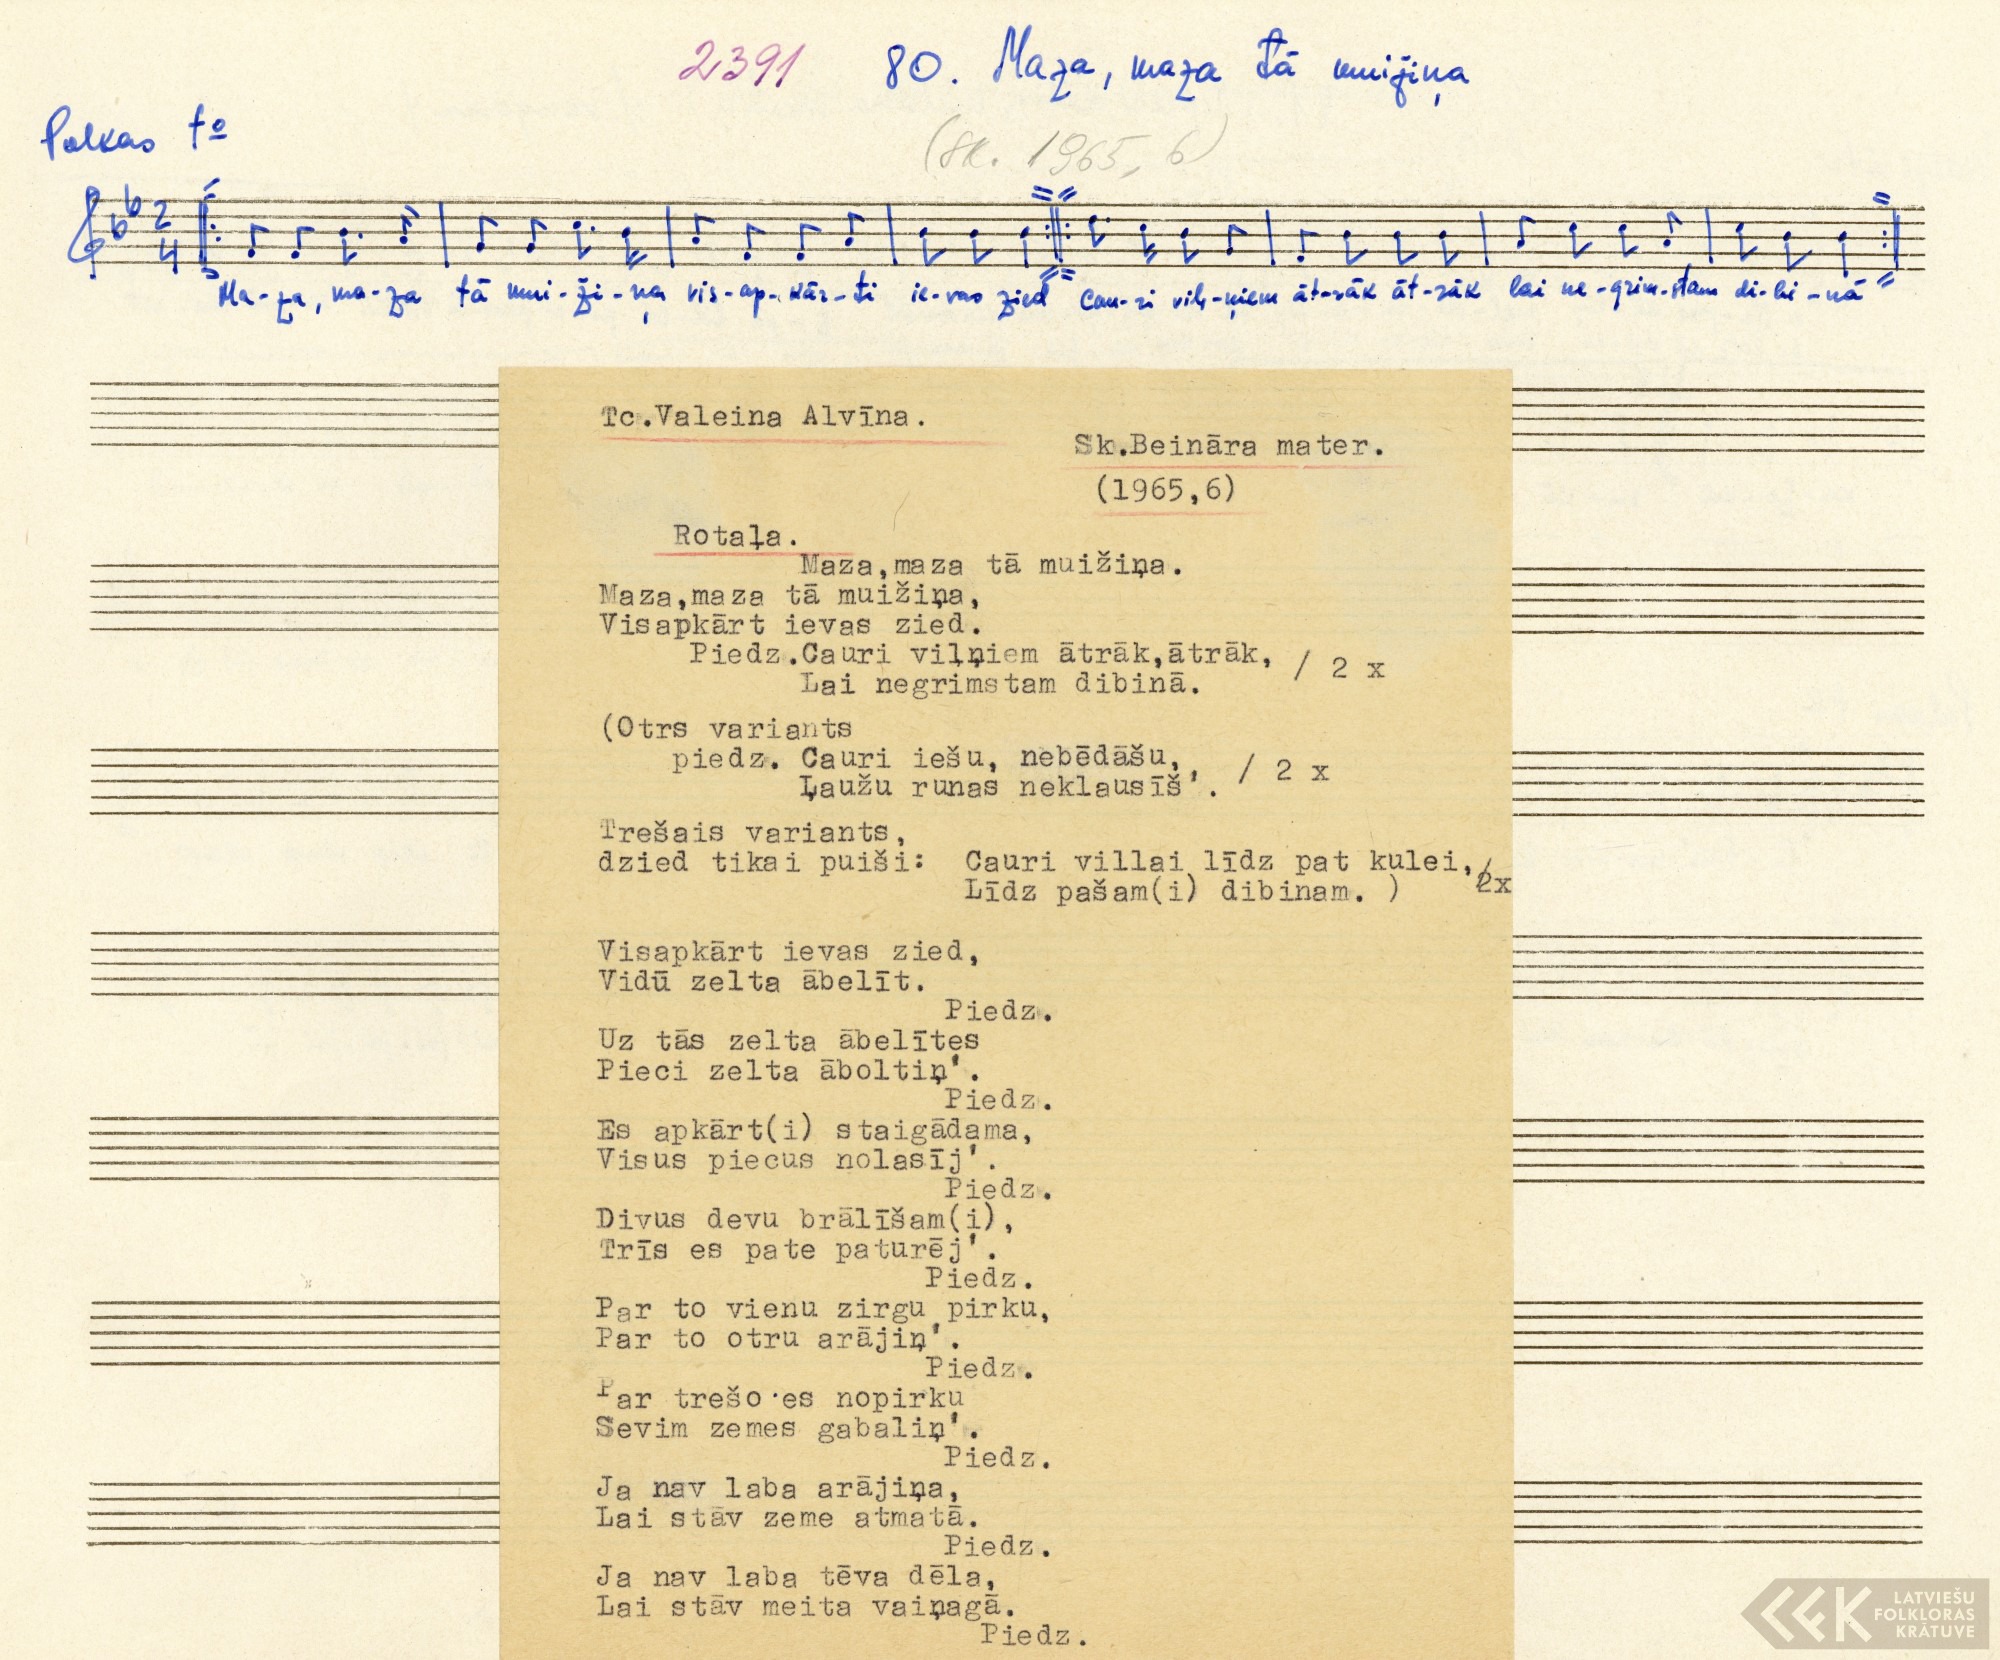 2391 80. Maza, maza tā muižiņa
(sk. 1965, 6)
Polkas tº
2/4
Ma-za, ma-za tā mui-ži-ņa vis-ap-kār-ti ie-vas zied Cau-ri viļ-ņiem āt-rāk āt-rāk lai ne-grim-stam di-bi-nā
Tc.Valeina Alvīna.
Sk.Beināra mater.
(1965,6)
Rotaļa.
Maza,maza tā muižiņa.
Maza,maza tā muižiņa,
Visapkārt ievas zied.
Piedz.Cauri viļņiem ātrāk,ātrāk, / 2 x
Lai negrimstam dibinā.
(Otrs variants
piedz. Cauri iešu, nebēdāšu, / 2 x
Ļaužu runas neklausīš'.
Trešais variants,
dzied tikai puiši: Cauri villai līdz pat kulei, /2x
Līdz pašam(i) dibinam. )
Visapkārt ievas zied,
Vidū zelta ābelīt.
Piedz.
Uz tās zelta ābelītes
Pieci zelta āboltiņ'.
Piedz.
Es apkārt(i) staigādama,
Visus piecus nolasīj'.
Piedz.
Divus devu brālīšam(i),
Trīs es pate paturēj'.
Piedz.
Par to vienu zirgu pirku,
Par to otru arājiņ'.
Piedz.
Par trešo es nopirku
Sevim zemes gabaliņ'.
Piedz.
Ja nav laba arājiņa,
Lai stāv zeme atmatā.
Piedz.
Ja nav laba tēva dēla,
Lai stāv meita vaiņagā.
Piedz.
LFK LATVIEŠU
FOLKLORAS
KRĀTUVE